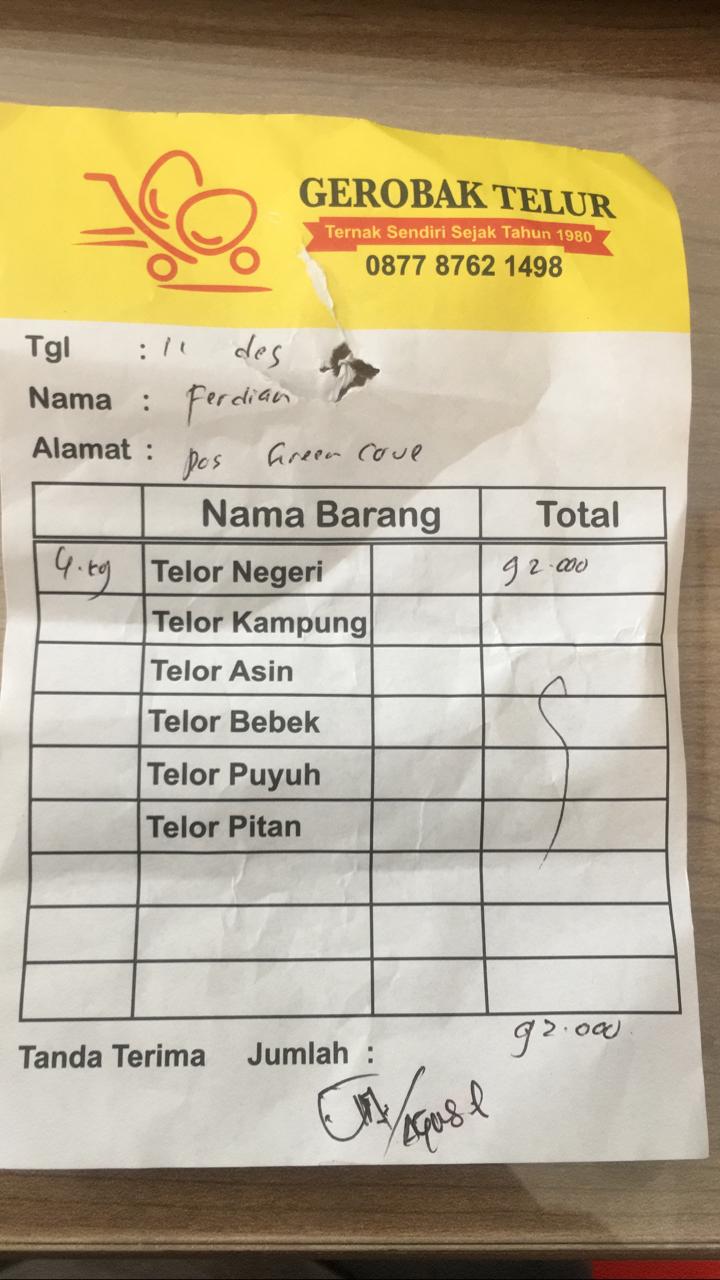 GEROBAK TELUR
Ternak Sendiri Sejak Tahun 1980
0877 8762 1498
Tgl : 11 des
Nama : Ferdian
Alamat : pos Green cove
Nama Barang Total
4.kg Telor Negeri 92.000
Telor Kampung
Telor Asin
Telor Bebek
Telor Puyuh
Telor Pitan
Tanda Terima Jumlah : 92.000